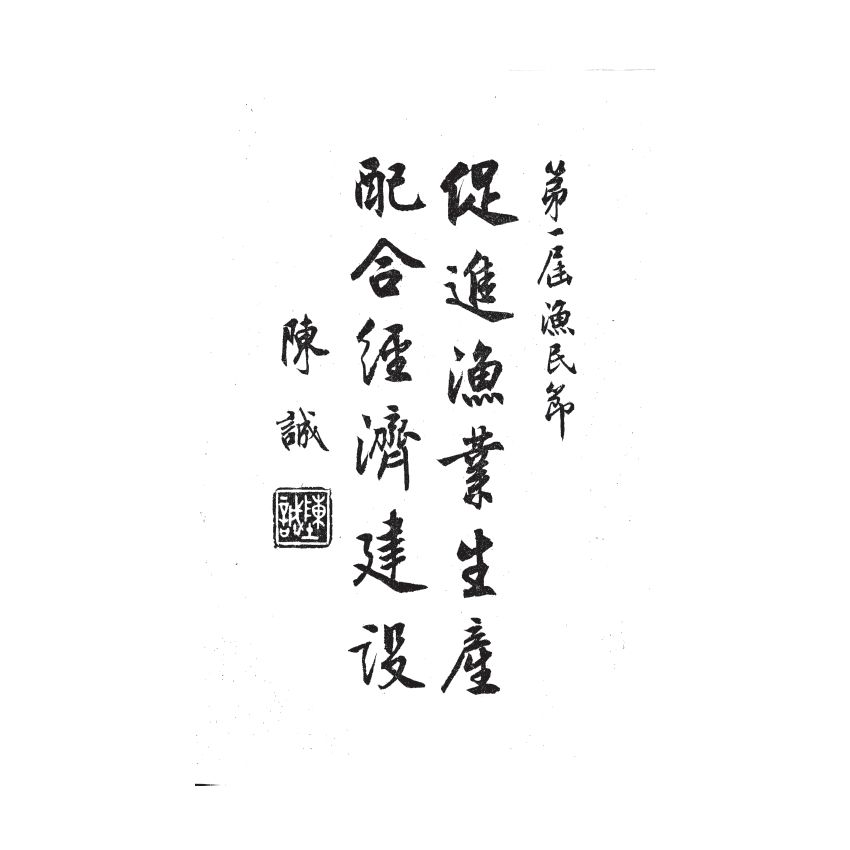 第一屆漁民節
促進漁業生產
配合經濟建設
陳誠
陳誠